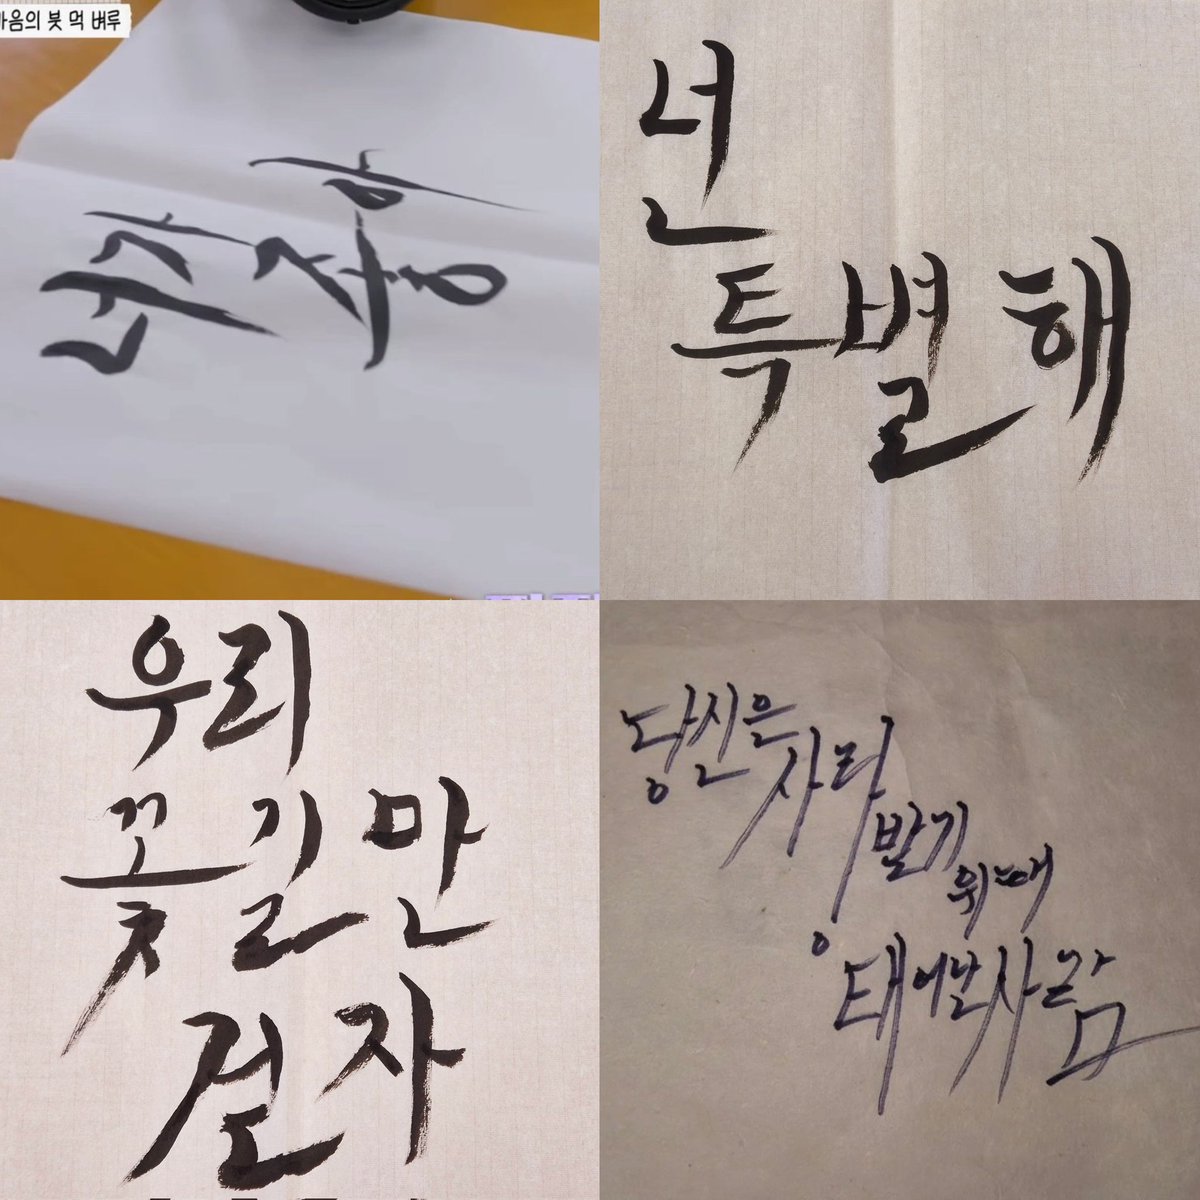 마음의 붓 먹 벼루
너가
좋아
넌
특별해
우리
꽃길만
걷자
당신은
사랑
받기
위해
태어난 사람